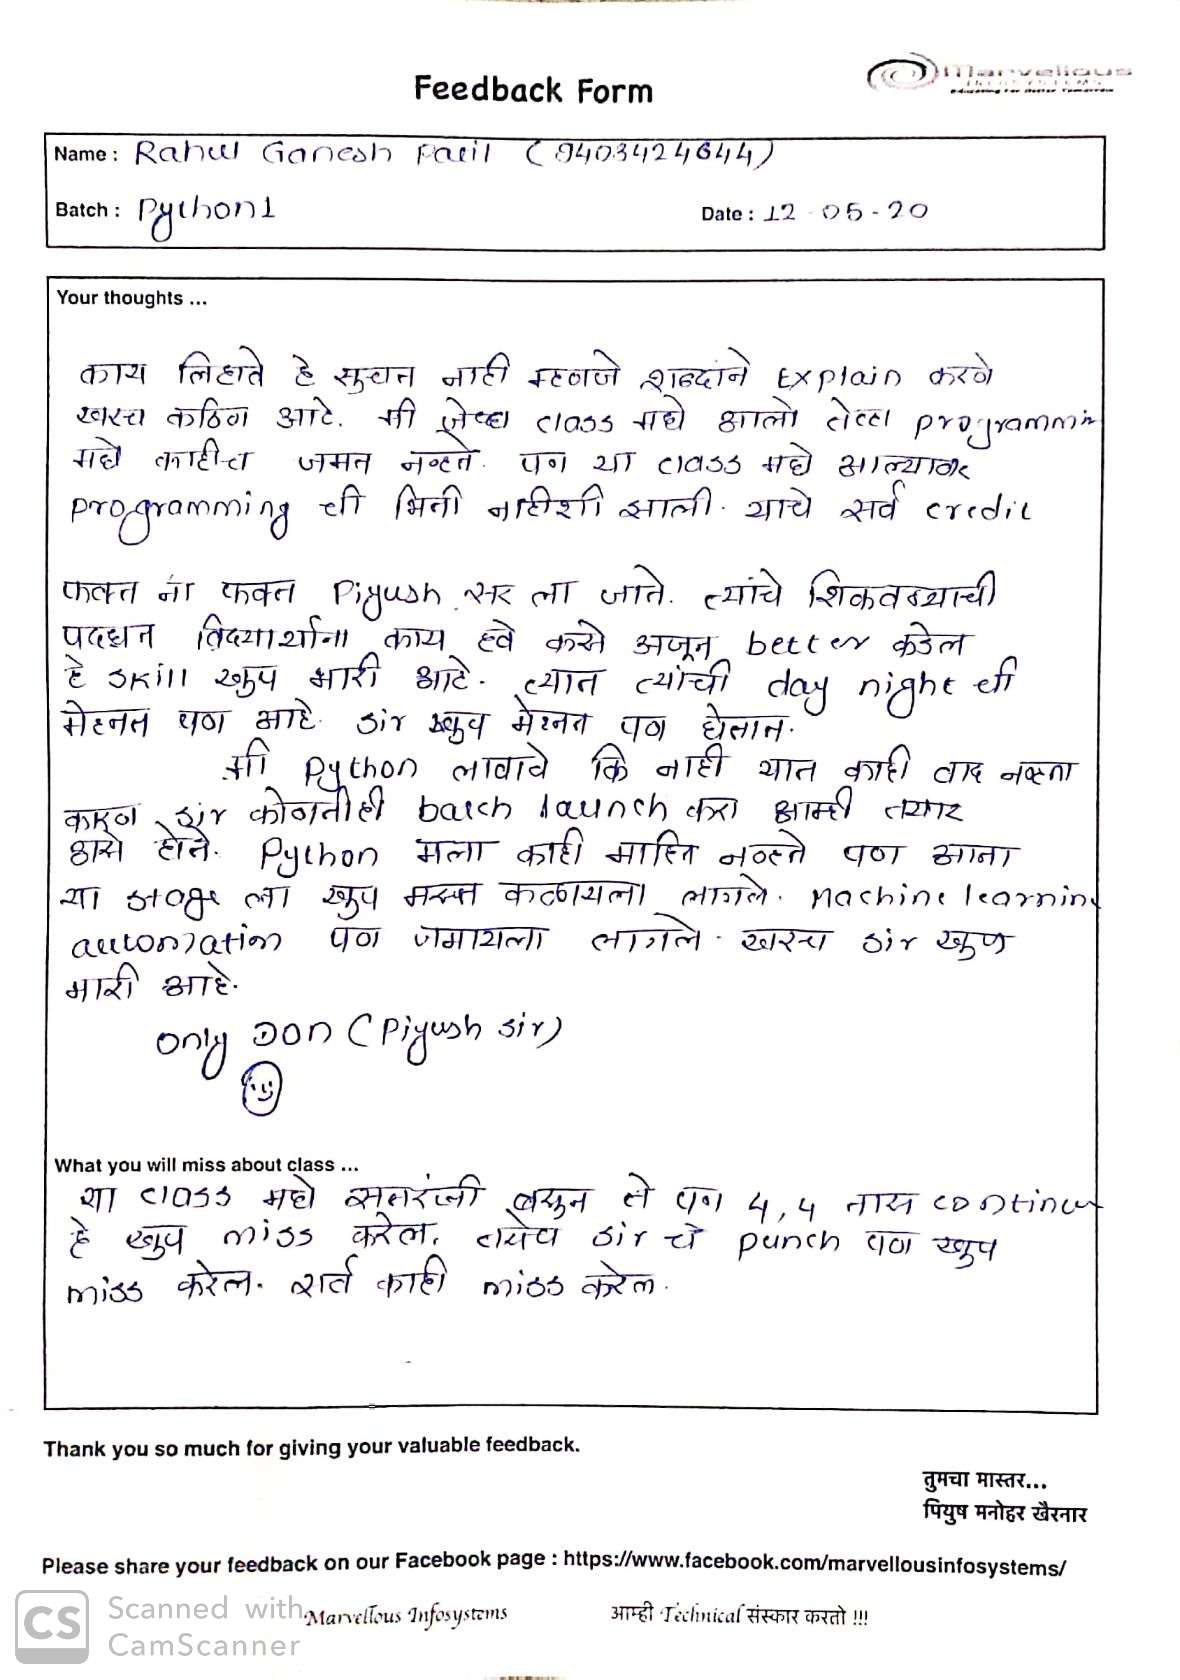 Feedback Form
Marvellous
INFOSYSTEMS
Educating For Better Tomorrow
Name : Rahul Ganesh Patil (9403424644)
Batch : Python1
Date : 12-05-20
Your thoughts ...
काय लिहाते हे सुचत नाही म्हणजे शब्दांने Explain करणे
खरच कठिण आहे. मी जेव्हा class मधे आलो तेव्हा programmin
मधे काहीच जमत नव्हते. पण या class मधे आल्यावर
programming ची भिती नाहीशी झाली. याचे सर्व credit
फक्त ना फक्त Piyush सर ला जाते. त्यांचे शिकवण्याची
पदधत विदयार्थाना काय हवे कसे अजून better कडेल
हे skill खुप भारी आहे. त्यात त्यांची day night ची
मेहनत पण आहे. sir खुप मेहनत पण घेतात.
मी Python लावावे कि नाही यात काही वाद नव्हता
कारण sir कोणतीही batch launch करा आम्ही तयार
असे होते. Python मला काही माहित नव्हते पण आता
या stage ला खुप मस्त कळायला लागले. Machine learning
automation पण जमायला लागले. खरच sir खुप
भारी आहे.
only DON (Piyush sir)
What you will miss about class ...
या class मधे सतरंजी बसुन ते पण 4,4 तास continu
हे खुप miss करेल. तसेच sir चे punch पण खुप
miss करेल. सर्व काही miss करेल.
Thank you so much for giving your valuable feedback.
तुमचा मास्तर...
पियुष मनोहर खैरनार
Please share your feedback on our Facebook page : https://www.facebook.com/marvellousinfosystems/
Marvellous Infosystems
आम्ही Technical संस्कार करतो !!!
CS Scanned with
CamScanner